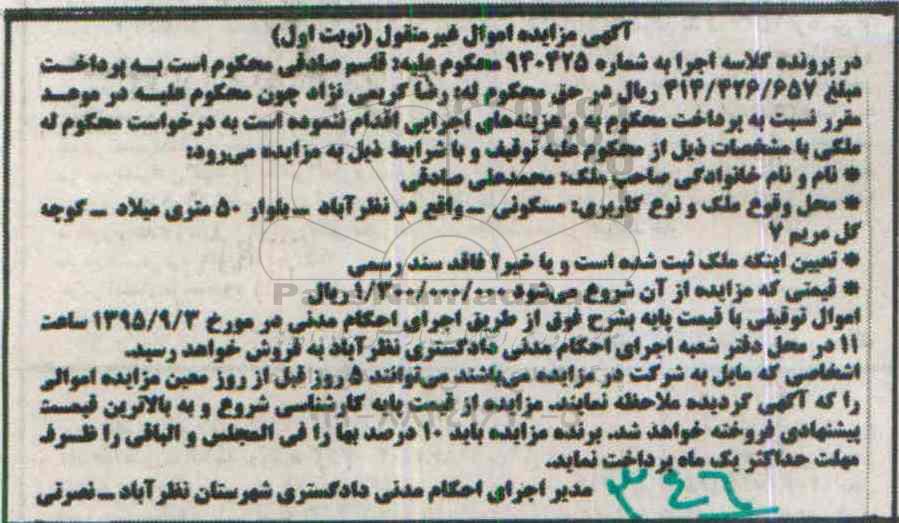 آگهی مزایده اموال غیرمنقول (نوبت اول)
در پرونده کلاسه اجرا به شماره ۹۴۰۴۲۵ محکوم علیه: قاسم صادقی محکوم است به پرداخت
مبلغ ۴۱۴/۴۲۶/۶۵۷ ریال در حق محکوم له: رضا کریمی نژاد چون محکوم علیه در موعد
مقرر نسبت به پرداخت محکوم به و هزینه‌های اجرایی اقدام ننموده است به درخواست محکوم له
ملکی با مشخصات ذیل از محکوم علیه توقیف و با شرایط ذیل به مزایده می‌رود:
* نام و نام خانوادگی صاحب ملک: محمدعلی صادقی
* محل وقوع ملک و نوع کاربری: مسکونی – واقع در نظرآباد – بلوار ۵۰ متری میلاد – کوچه
گل مریم ۷
* تعیین اینکه ملک ثبت شده است و یا خیر؟ فاقد سند رسمی
* قیمتی که مزایده از آن شروع می‌شود ۱/۳۰۰/۰۰۰/۰۰۰ ریال
اموال توقیفی با قیمت پایه بشرح فوق از طریق اجرای احکام مدنی در مورخ ۱۳۹۵/۹/۳ ساعت
۱۱ در محل دفتر شعبه اجرای احکام مدنی دادگستری نظرآباد به فروش خواهد رسید.
اشخاصی که مایل به شرکت در مزایده می‌باشند می‌توانند ۵ روز قبل از روز معین مزایده اموالی
را که آگهی گردیده ملاحظه نمایند. مزایده از قیمت پایه کارشناسی شروع و به بالاترین قیمت
پیشنهادی فروخته خواهد شد. برنده مزایده باید ۱۰ درصد بها را فی المجلس و الباقی را ظرف
مهلت حداکثر یک ماه پرداخت نماید.
مدیر اجرای احکام مدنی دادگستری شهرستان نظرآباد – نصرتی